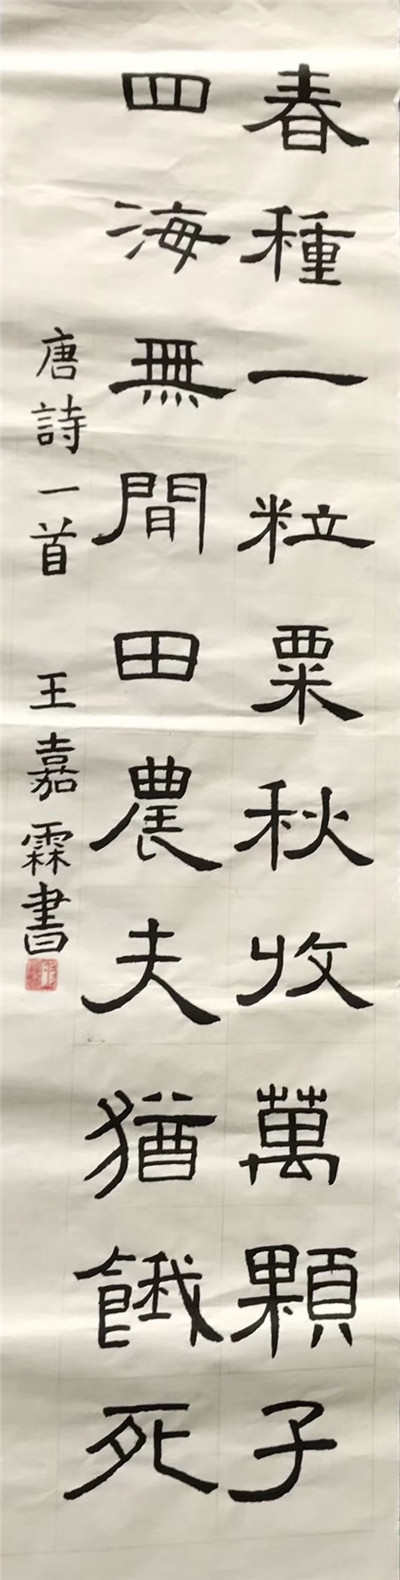 春種一粒粟秋收萬顆子
四海無間田農夫猶餓死
唐詩一首 王嘉霖書